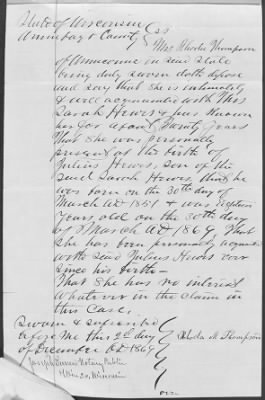 State of Wisconsin } ss
Winnebago County }
Mrs Rhoda Thompson
of Winneconne in said State
being duly sworn doth depose
and say that she is intimately
& well acquainted with Mrs
Sarah Hewes & has known
her for about Twenty Years
That she was personally
present at the birth of
Julius Hewes, son of the
said Sarah Hewes, that he
was born on the 30th day of
March AD 1851 & was
Years old on the 30th day
of March AD 1869. That
she has been personally acquainted
with said Julius Hewes ever
since his birth—
That she has no interest
whatever in the claim in
this case.
Sworn & subscribed
before me this 2d day
of December AD 1869
Rhoda M Thompson
Joseph Notary Public
Win Co, Wisconsin